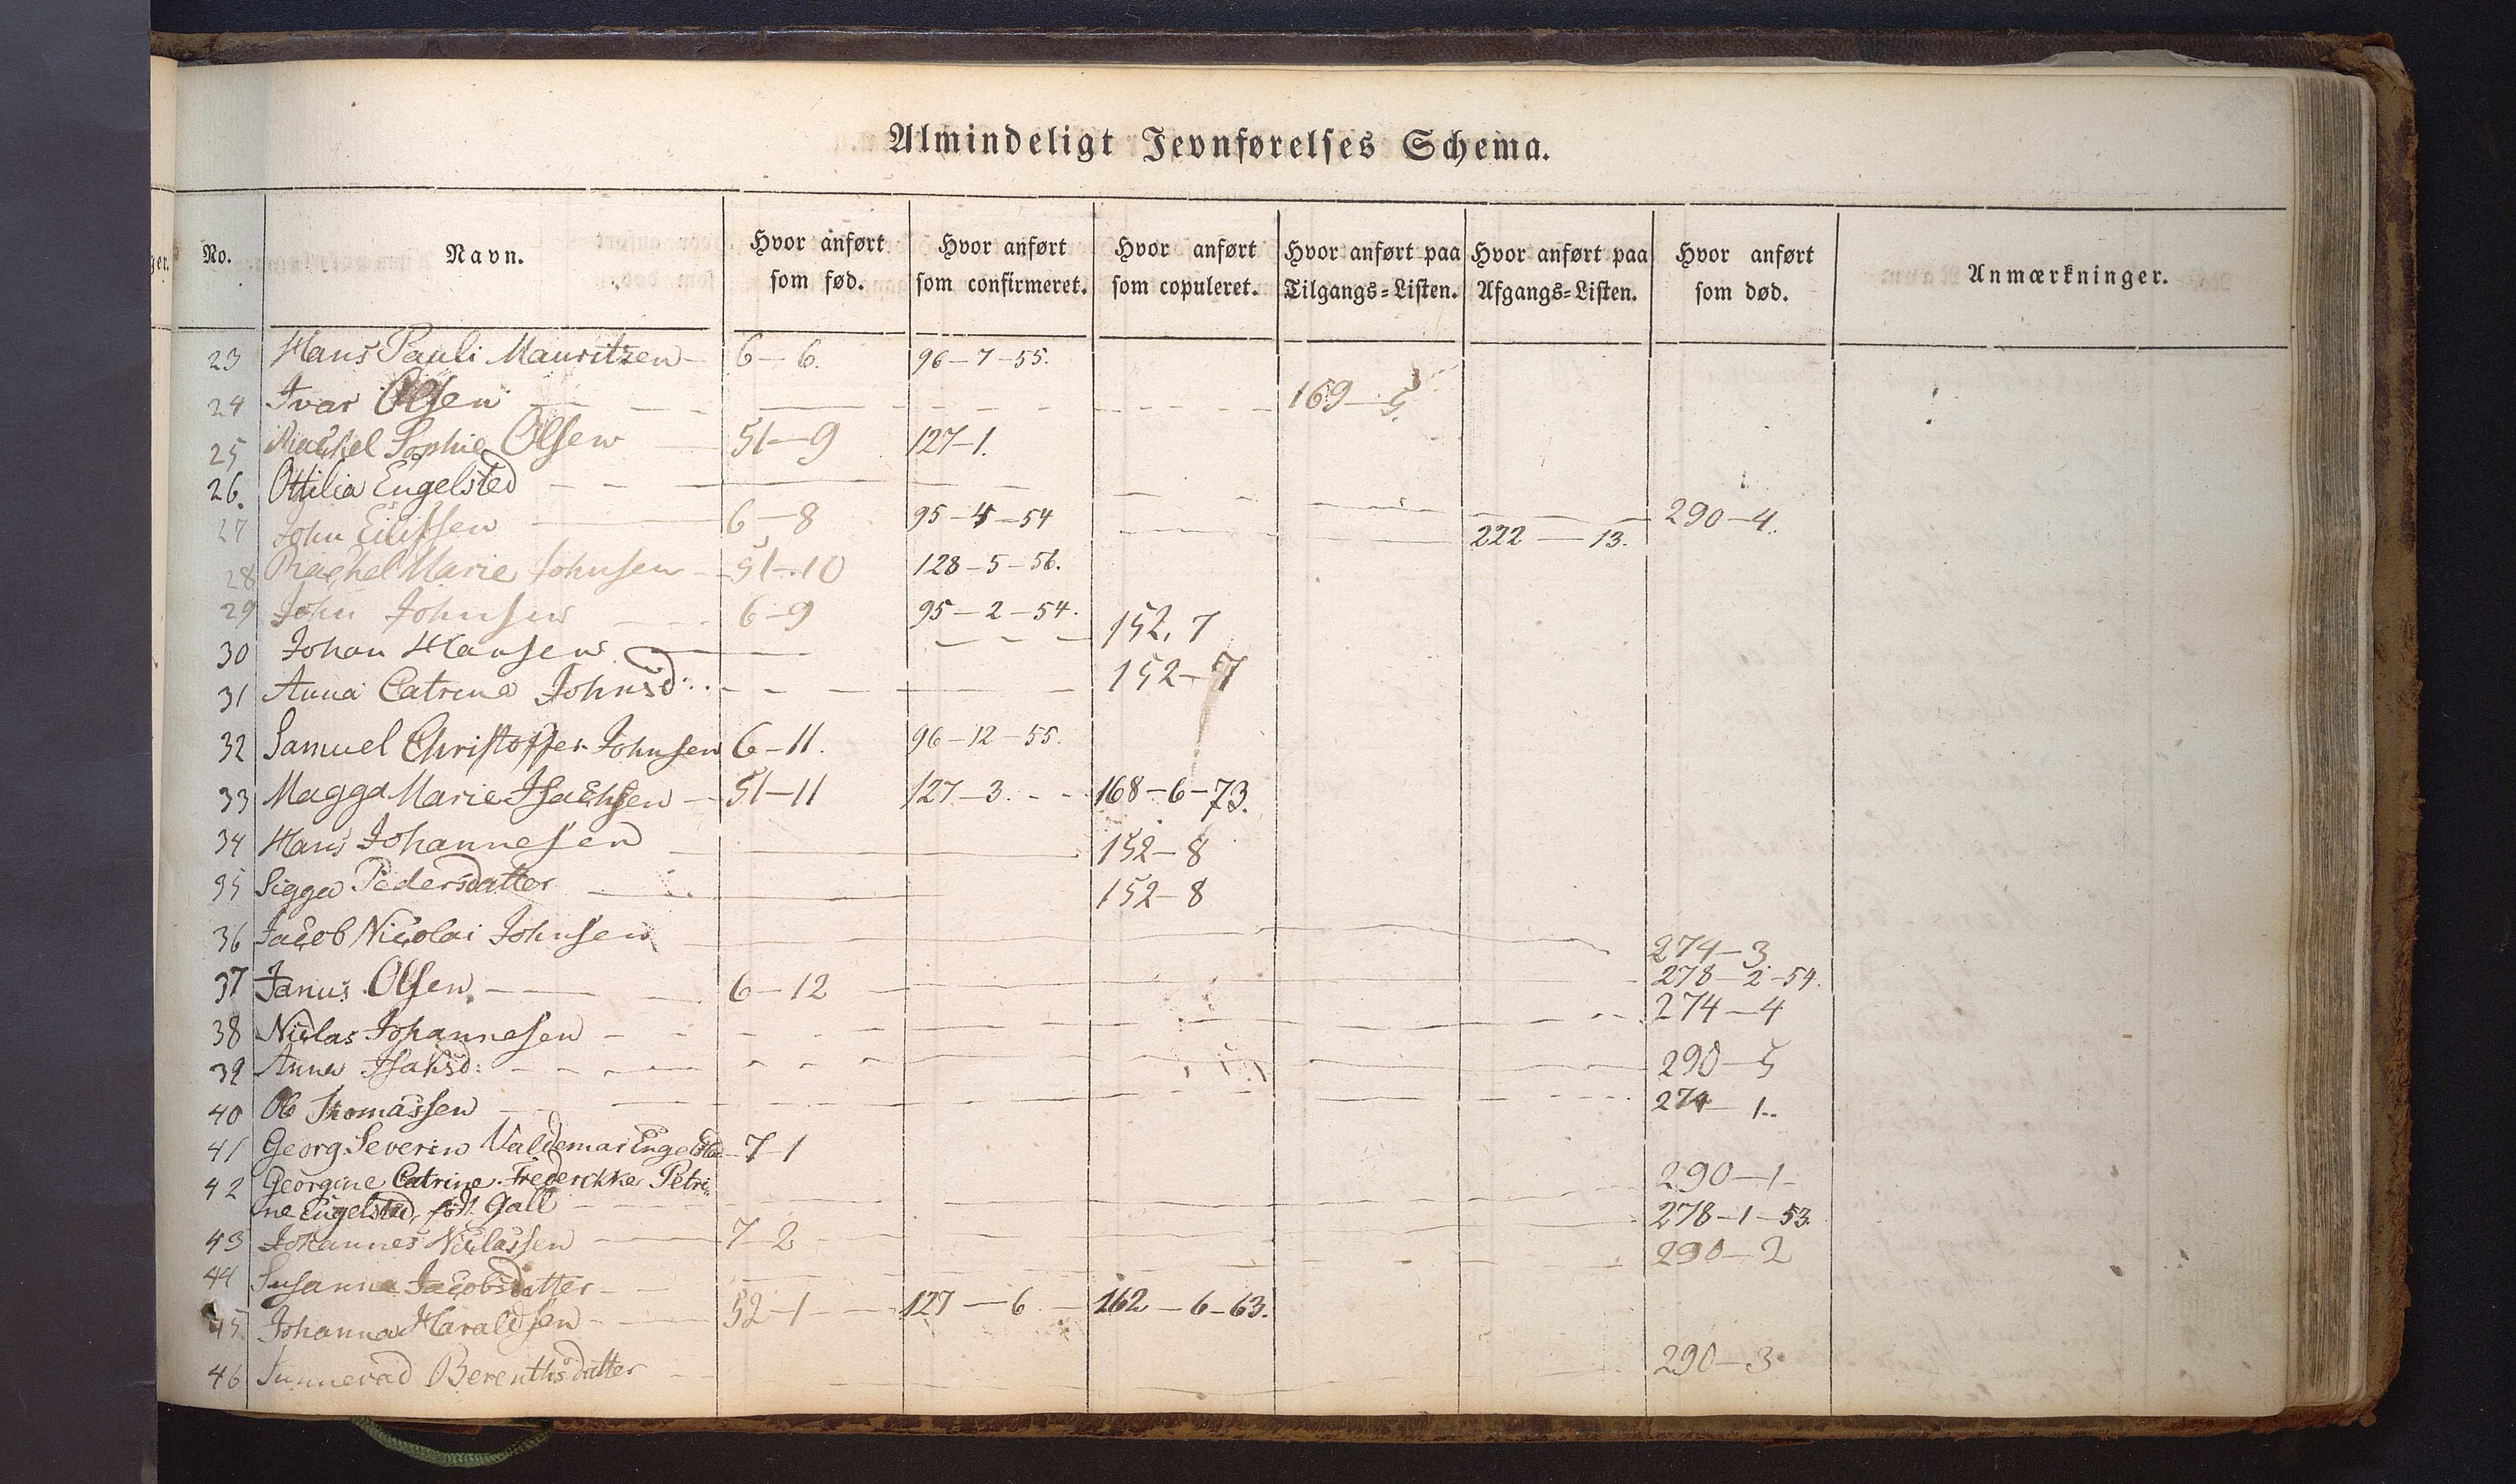 Almindeligt Jevnførelses Schema.
ger.
No. Navn. Hvor anført som fød. Hvor anført som confirmeret. Hvor anført som copuleret. Hvor anført paa Tilgangs=Listen. Hvor anført paa Afgangs=Listen. Hvor anført som død. Anmærkninger.
23 Hans Pauli Mauritzen 6-6. 96-7-55.
24 Ivar Olsen 169-5
25 Rachel Sophie Olsen 51-9 127-1.
26. Ottilia Engelsted 290-4.
27 John Eilifsen 6-8 95-4-54 222-13.
28 Rachel Marie Johnsen 51-10 128-5-56.
29 John Johnsen 6-9 95-2-54.
30 Johan Hansen 152, 7
31 Anna Catrina Johnsd: 152-7
32 Samuel Christoffer Johnsen 6-11. 96-12-55.
33 Magga Marie Isachsen 51-11 127-3. 168-6-73.
34 Hans Johannesen 152-8
35 Sigga Pedersdatter 152-8
36 Jacob Nicolai Johnsen 274-3
37 Janus Olsen 6-12 278-2-54.
38 Niclas Johannesen 274-4
39 Anna Isaksd: 290-5
40 Ole Thomassen 274-1.
41 Georg Severin Valdemar Engelsted 7-1
42 Georgine Catrine Frederikke Petri-
ne Engelsted, fød Gall 290-1
43 Johannes Niclassen 7-2 278-1-53.
44 Susanna Jacobsdatter 290-2
45. Johanna Haraldsen 52-1 127-6 162-6-63.
46 Sunnevad Berenthsdatter 290-3